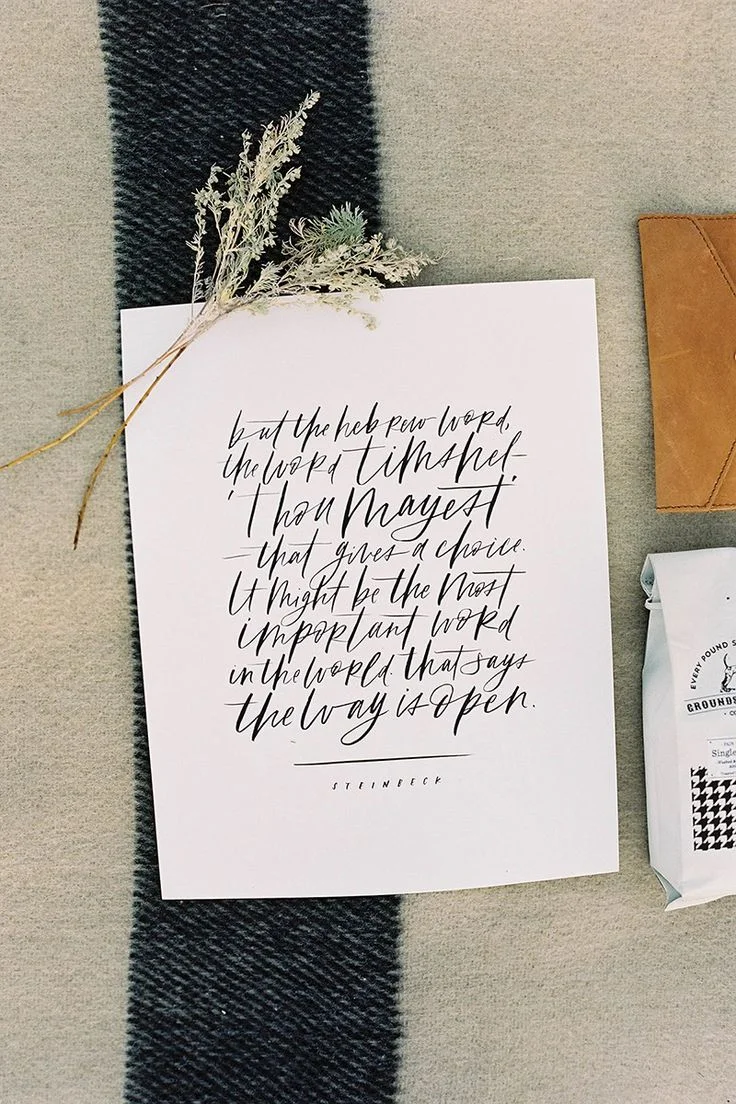 but the hebrew word,
the word timshel–
'Thou mayest'
–that gives a choice.
It might be the most
important word
in the world. that says
the way is open.
STEINBECK
EVERY POUND
GROUNDS
Single